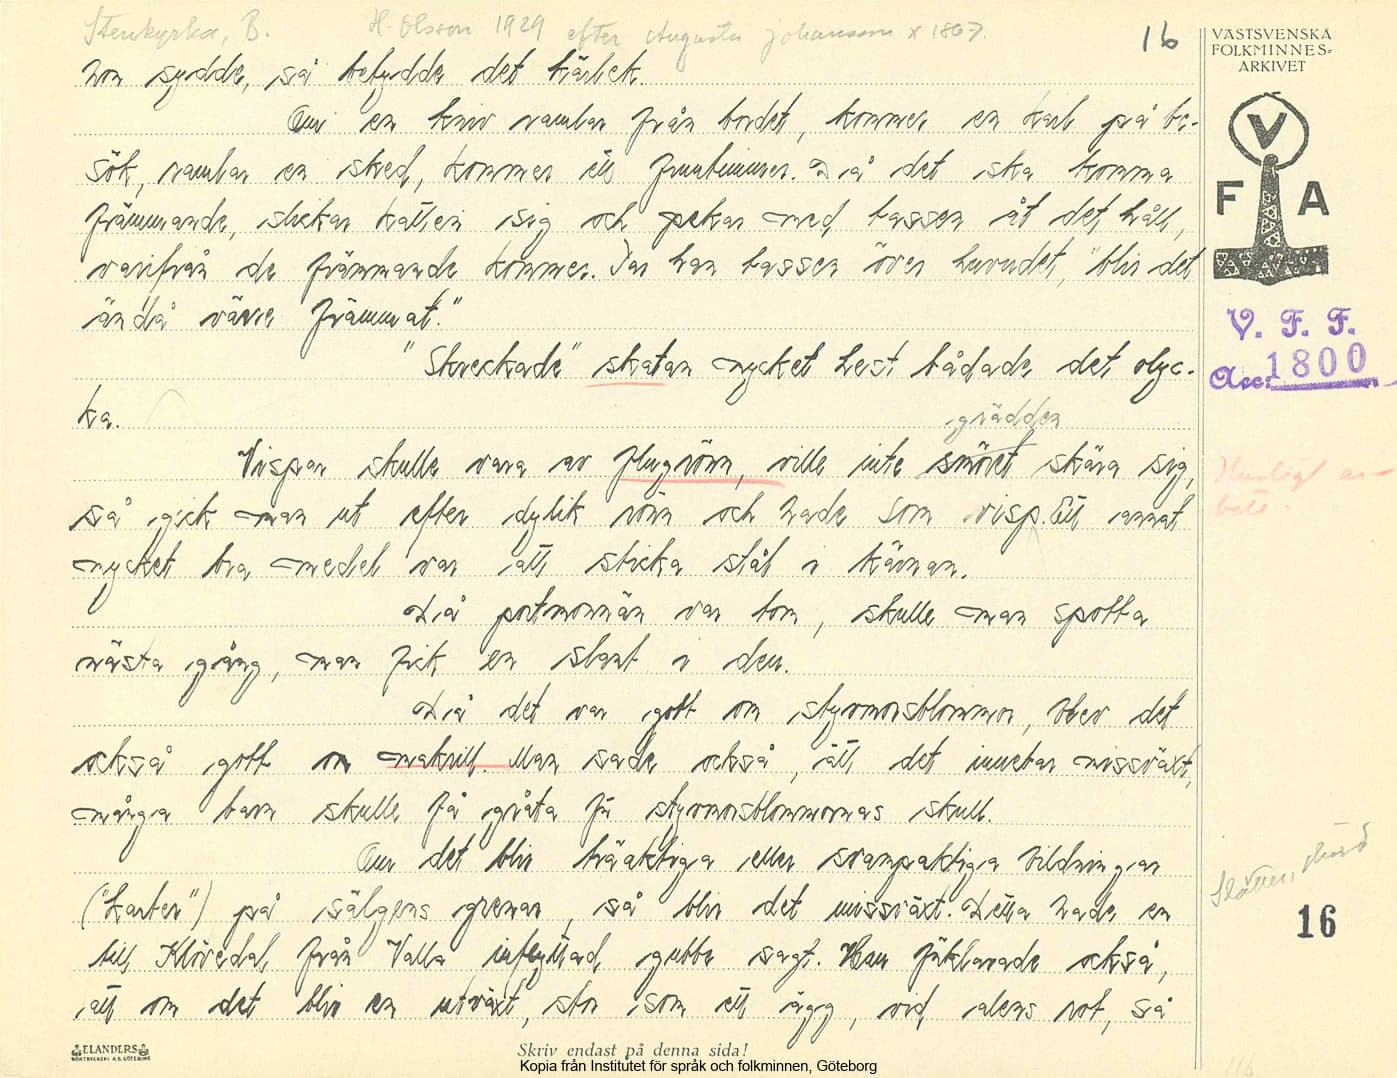 Stenkyrka, B. H. Olsson 1929 efter Augusta Johansson x 1867.
16
VÄSTSVENSKA
FOLKMINNES-
ARKIVET
V
F A
V. F. F.
Acc: 1800
hon sydde, så betydde det kärlek.
Om en kniv ramlar från bordet, kommer en karl på be-
sök, ramlar en sked, kommer ett fruntimmer. Då det ska komma
främmande, slickar katten sig och pekar med tassen åt det håll,
varifrån de främmande kommer. Tar han tassen över huvudet, "blir det
ändå värre främmat."
"Skreckade" skatan mycket hest bådade det olyc-
ka.
grädden
Vispar skulle vara av flugrönn, ville inte smöret skära sig,
så gick man ut efter dylik rönn och hade som visp. Ett annat
mycket bra medel var att sticka stål i kärnan.
Då portmonnän var tom, skulle man spotta
nästa gång, man fick en slant i den.
Då det var gott om styvmorsblommor, blev det
också gott om makrill. Man sade också, att det innebar missväxt,
många barn skulle få gråta för styvmorsblommornas skull.
Om det blir träaktiga eller svampaktiga bildningar
("kartor") på sälgens grenar, så blir det missväxt. Detta hade en
till Klövedal från Valla inflyttad gubbe sagt. Han förklarade också,
att om det blir en utväxt, stor som ett ägg, vid alens rot, så
Husligt ar-
bete.
Slåtter, skörd
16
ELANDERS
BOKTRYCKERI A.B. GÖTEBORG
Skriv endast på denna sida!
Kopia från Institutet för språk och folkminnen, Göteborg
116